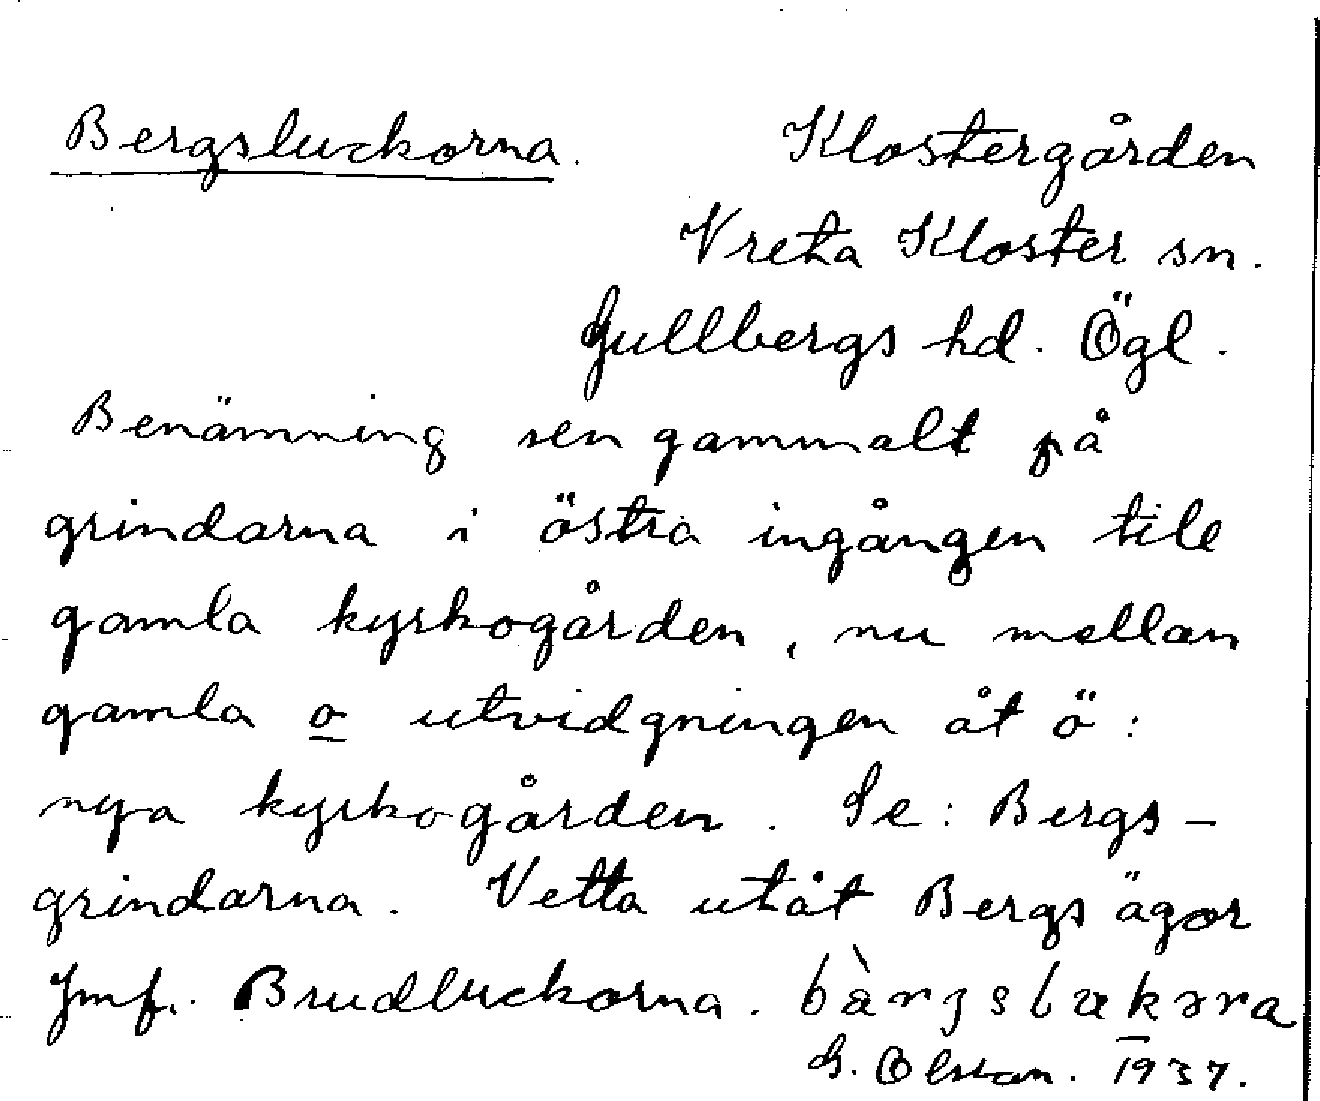 Bergsluckorna. Klostergården
Vreta Kloster sn.
Gullbergs hd. Ögl.
Benämning sen gammalt på
grindarna i östra ingången till
gamla kyrkogården, nu mellan
gamla o utvidgningen åt ö:
nya kyrkogården. Se: Bergs-
grindarna. Vetta utåt Bergs ägor
Jmf. Brudluckorna.
G. Olsson. 1937.